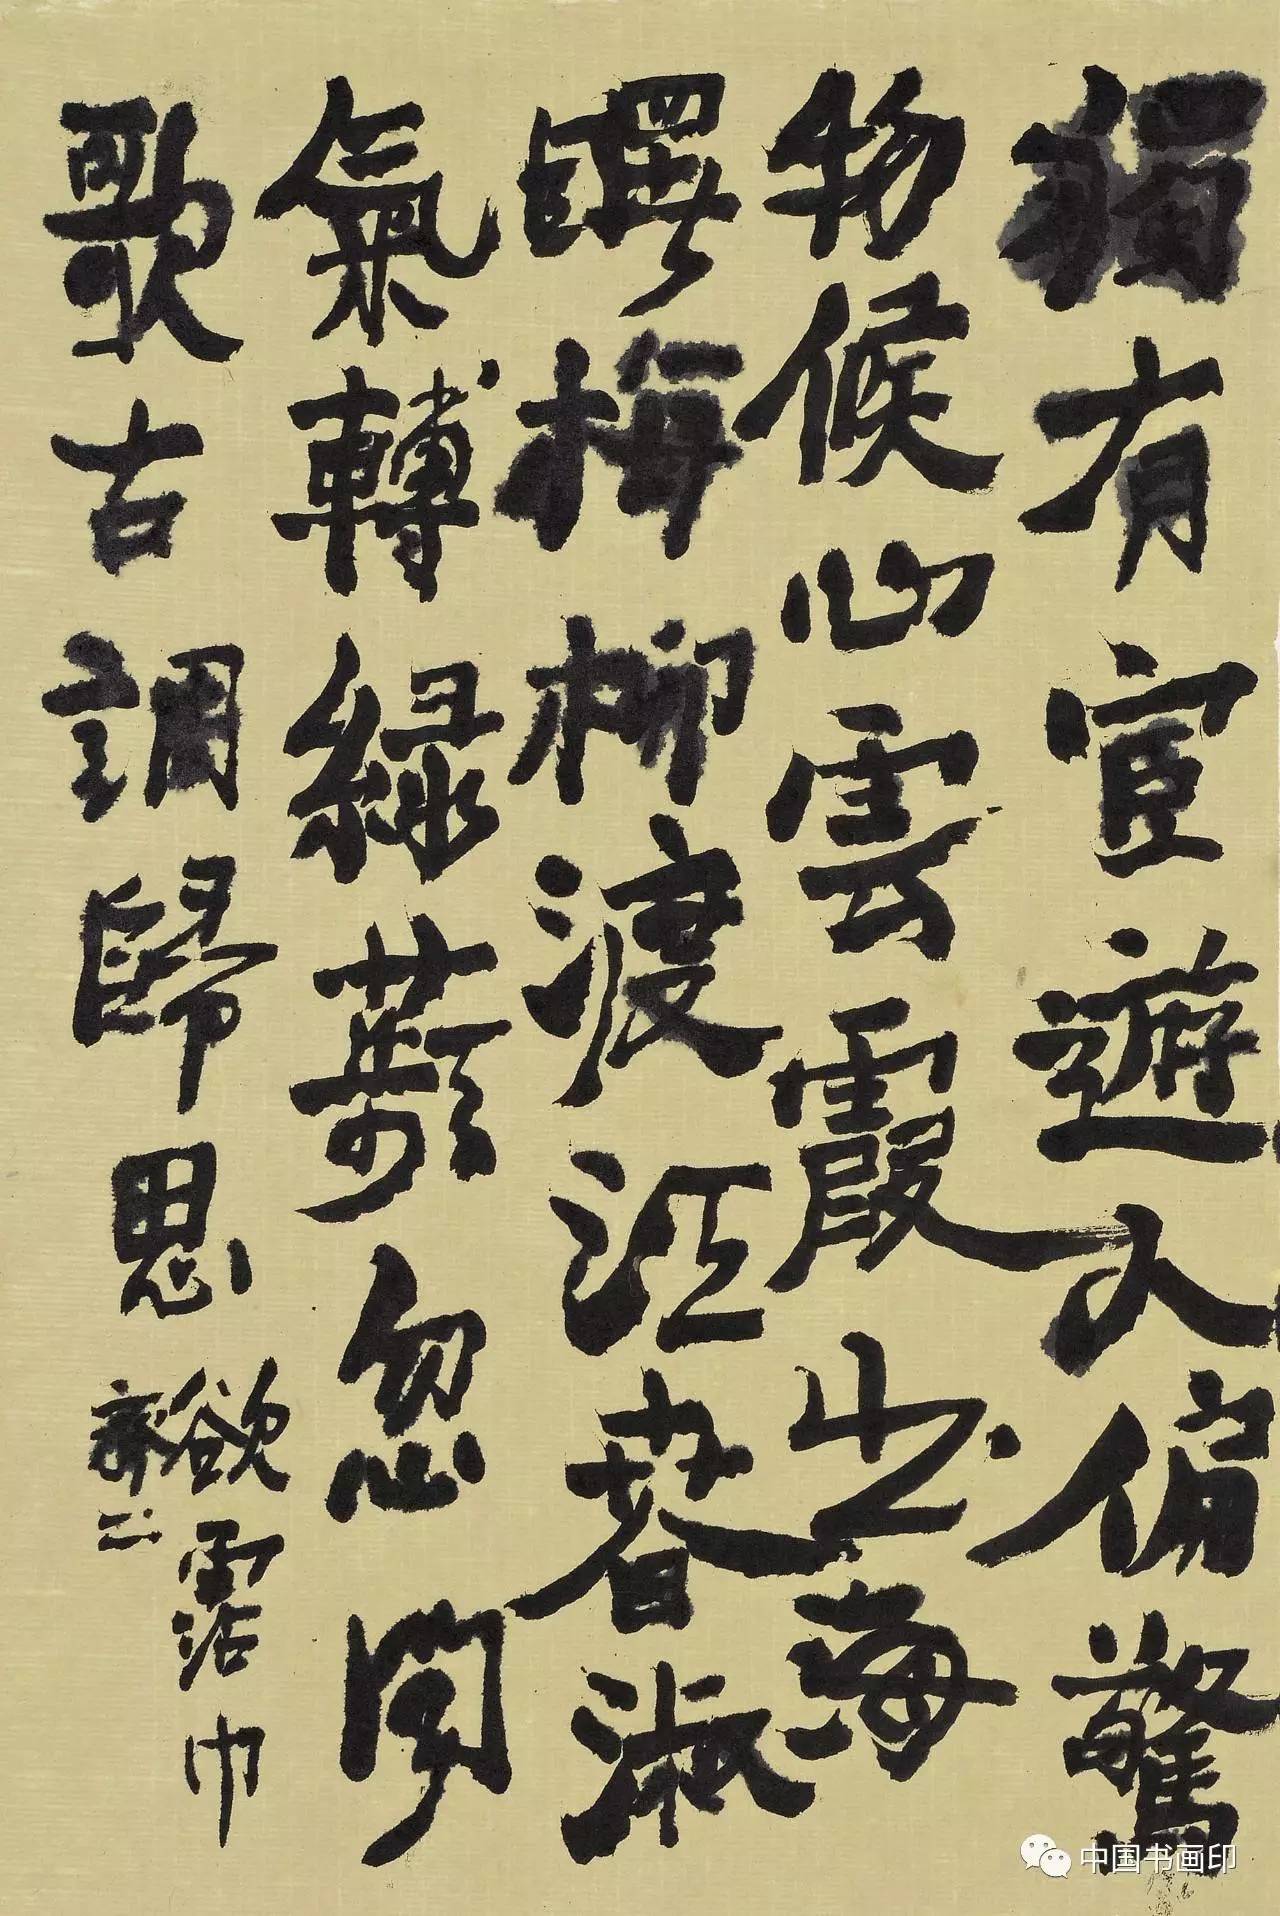 獨有宦遊人偏驚
物候雲霞出海
曙梅柳渡江春淑
氣轉綠蘋忽聞
歌古調歸思欲霑巾
中国书画印